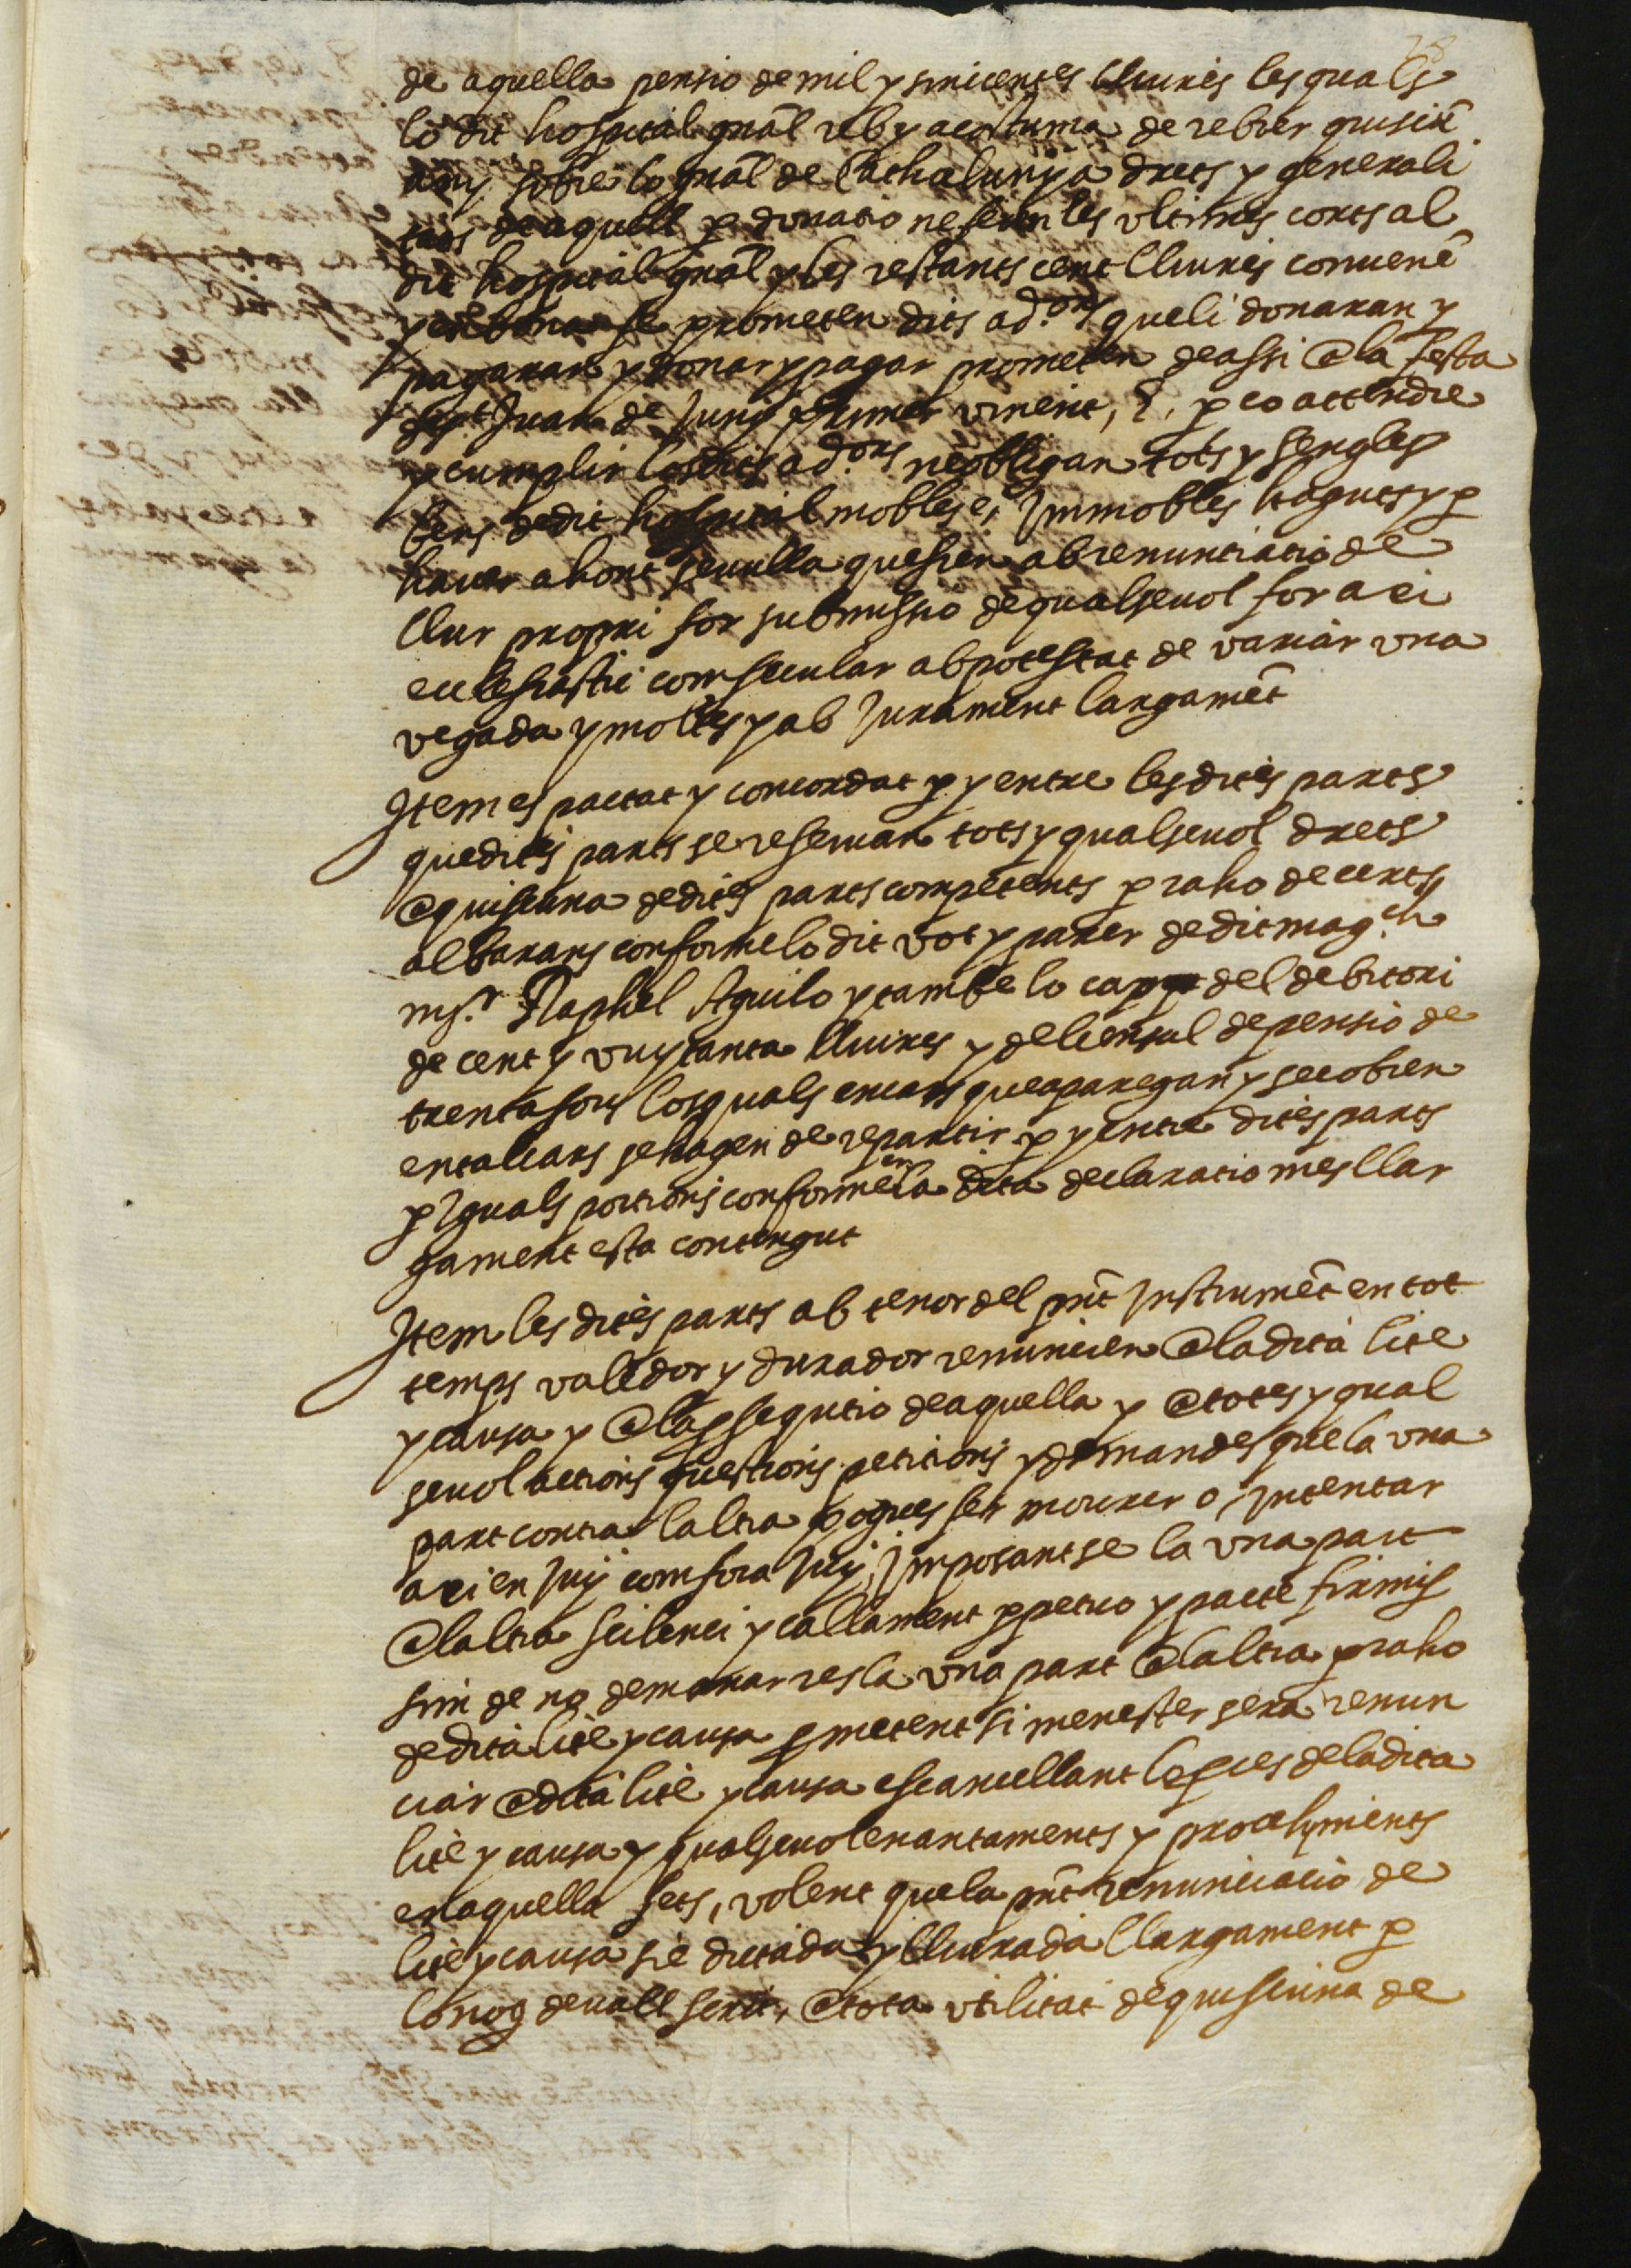 de aquella pensio de mil y sinicentes lliures les quals
lo dit hospital gnāl reb y acostuma de rebrer quiscū
any sobre lo gnāl de Cathalunya drets y generali
tats de aquell p donatio ne feren les ultimes corts al
dit hospital gnāl y les restants cent lliures conuenē
y en bona fe prometen dits ad.ors que li donaran y
pagaran y donar y pagar prometen de assi a la festa
de st Juan de Juny primer vinent, E, p ço attendre
y cumplir los dits ad.ors ne obligan tots y sengles
bens de dit hospital mobles e, Immobles haguts y p
hauer ahont seuulla que sien ab renuntiatio de
llur propri for submissio de qualseuol for axi
ecclesiastic com secular ab potestat de variar vna
vegada y moltes y ab Jurament largamēt
Item es pactat y concordat p y entre les dites parts
que dites parts se reseruan tots y qualseuol drets
a quiscuna de dites parts competents p raho de certs
albarans conforme lo dit vot y parer de dit mag.ch
ms.r Raphel Aguilo y tambe lo cap del debitori
de cent y vuytanta lliures y del censal de pensio de
trenta sous los quals en cars que aparegan y se cobren
en tal cars se hagen de repartir p y entre dites parts
p Iguals portions conforme en la dita declaratio mes llar
gament esta contengut
Item les dites parts ab tenor del pnt Instrumēt en tot
temps valedor y durador renuncien a la dita lite
y causa y a la psequtio de aquella y a totes y qual
seuol actions questions petitions y demandes que la vna
part contra laltra pogues fer mourer o, Intentar
axi en Juy com fora Juy, Imposantse la vna part
a laltra scilenci y callament ppetuo y pacte firmis
sim de no demanar res la vna part a laltra p raho
de dita lite y causa pmetent si menester sera renun
ciar a dita lite y causa escancellant les pces de la dita
lite y causa y qualseuol enantaments y procehiments
en aquella fets, volent que la pnt renunciacio de
lite y causa sie dictada y lliurada llargament p
lo noȝ deuall scrit, a tota vtilitat de quiscuna de